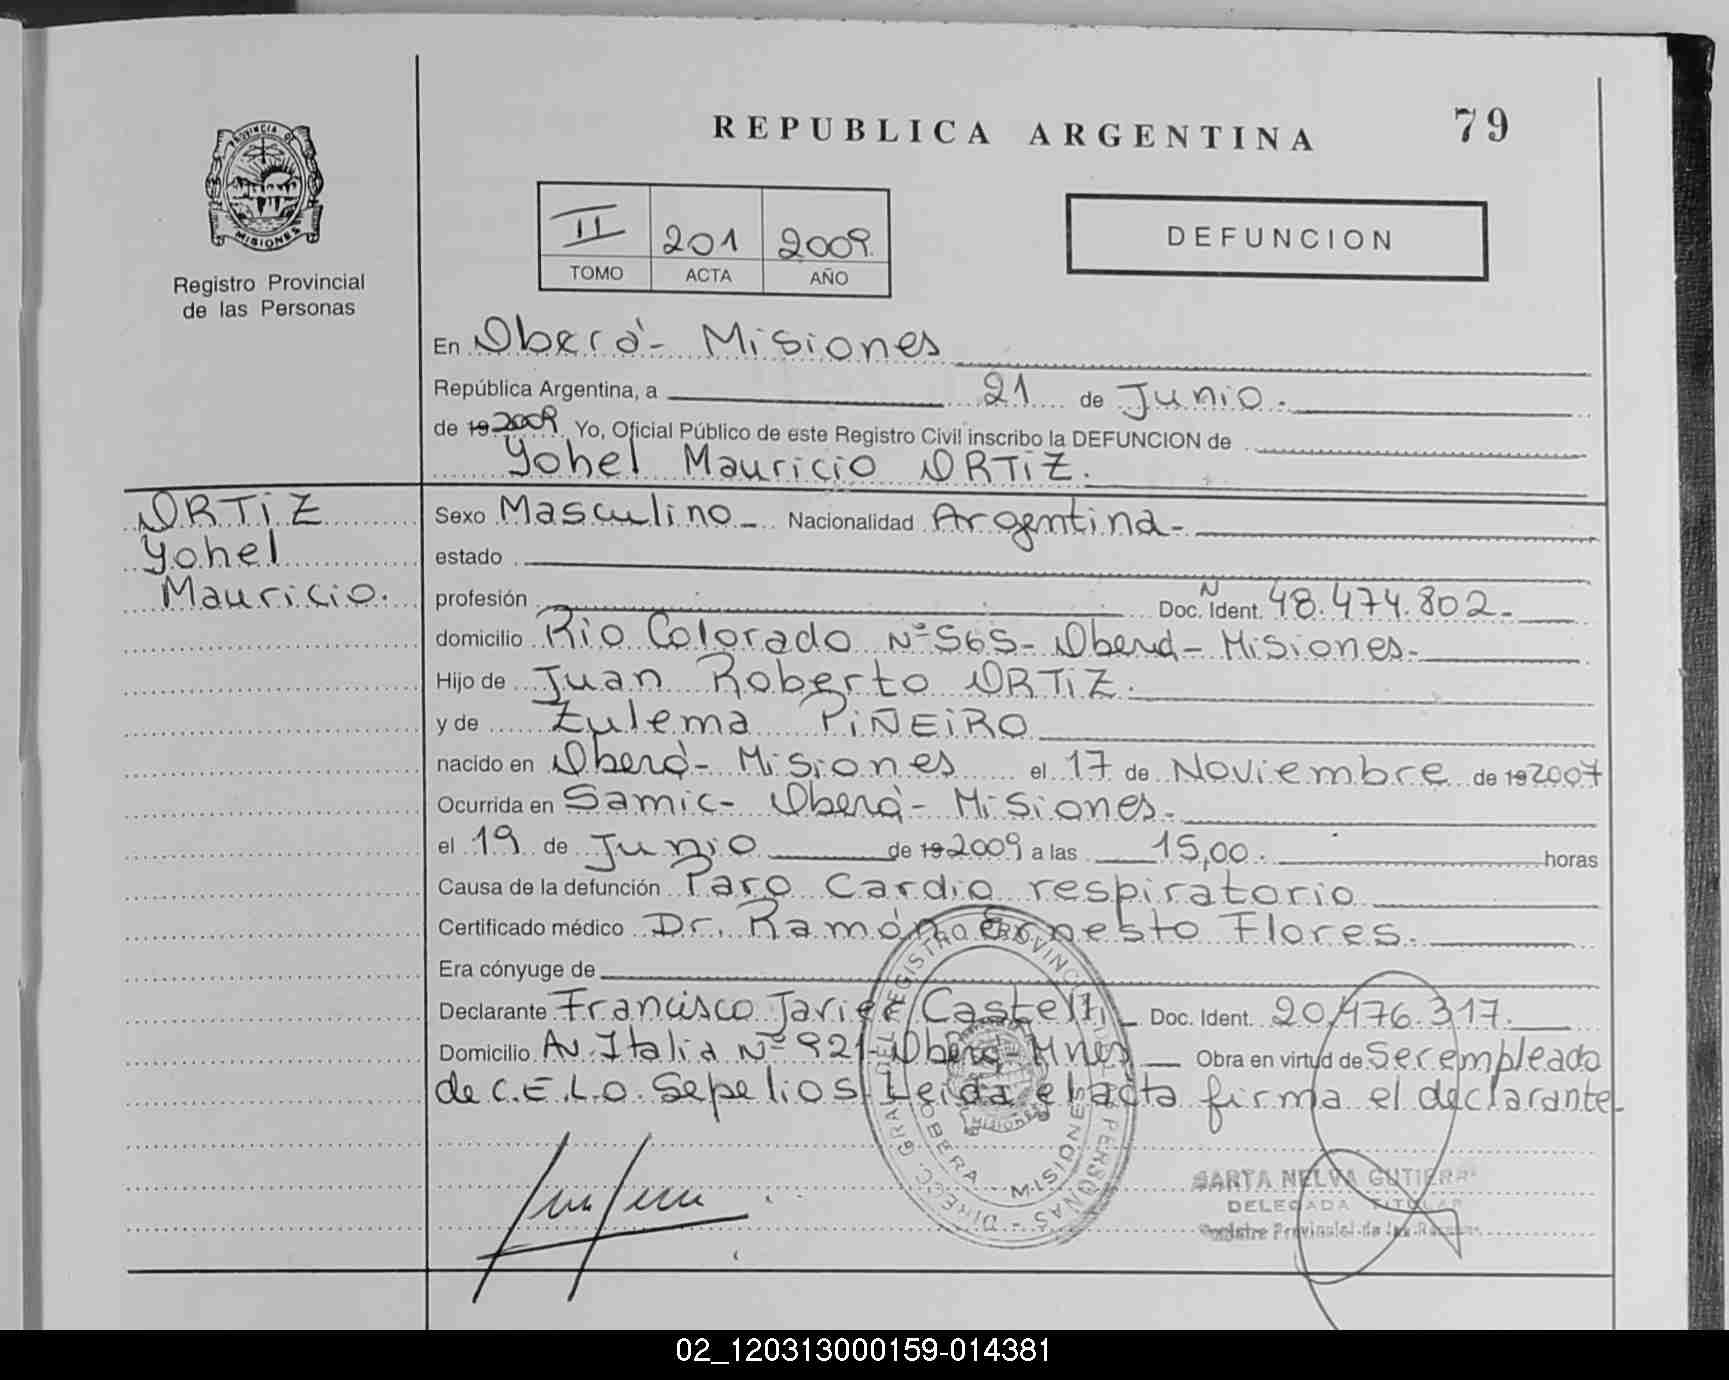 REPUBLICA ARGENTINA
79
PROVINCIA DE
MISIONES
Registro Provincial
de las Personas
II 201 2009
TOMO ACTA AÑO
DEFUNCION
En Oberá - Misiones
República Argentina, a 21 de Junio.
de 19 2009 Yo, Oficial Público de este Registro Civil inscribo la DEFUNCION de
Yohel Mauricio ORTIZ.
ORTIZ
Yohel
Mauricio.
Sexo Masculino - Nacionalidad Argentina -
estado
profesión Doc. Ident. N 48.474.802-
domicilio Rio Colorado Nº 565- Oberá - Misiones-
Hijo de Juan Roberto ORTIZ.
y de Zulema PIÑEIRO
nacido en Oberá - Misiones el 17 de Noviembre de 19 2007
Ocurrida en Samic- Oberá - Misiones.
el 19 de Junio de 19 2009 a las 15,00. horas
Causa de la defunción Paro Cardio respiratorio
Certificado médico Dr. Ramón Ernesto Flores.
Era cónyuge de
Declarante Francisco Javier Castelli - Doc. Ident. 20.476.317.
Domicilio Av. Italia Nº 921 - Oberá - Mnes - Obra en virtud de Ser empleado
de C.E.L.O. Sepelios Leida el acta firma el declarante
DIREC. GRAL. DEL REGISTRO PROVINCIAL PERSONAS
OBERA MISIONES
MISIONES
SARTA NELVA GUTIERR
DELEGADA TITULAR
Registro Provincial de las Personas
02_120313000159-014381